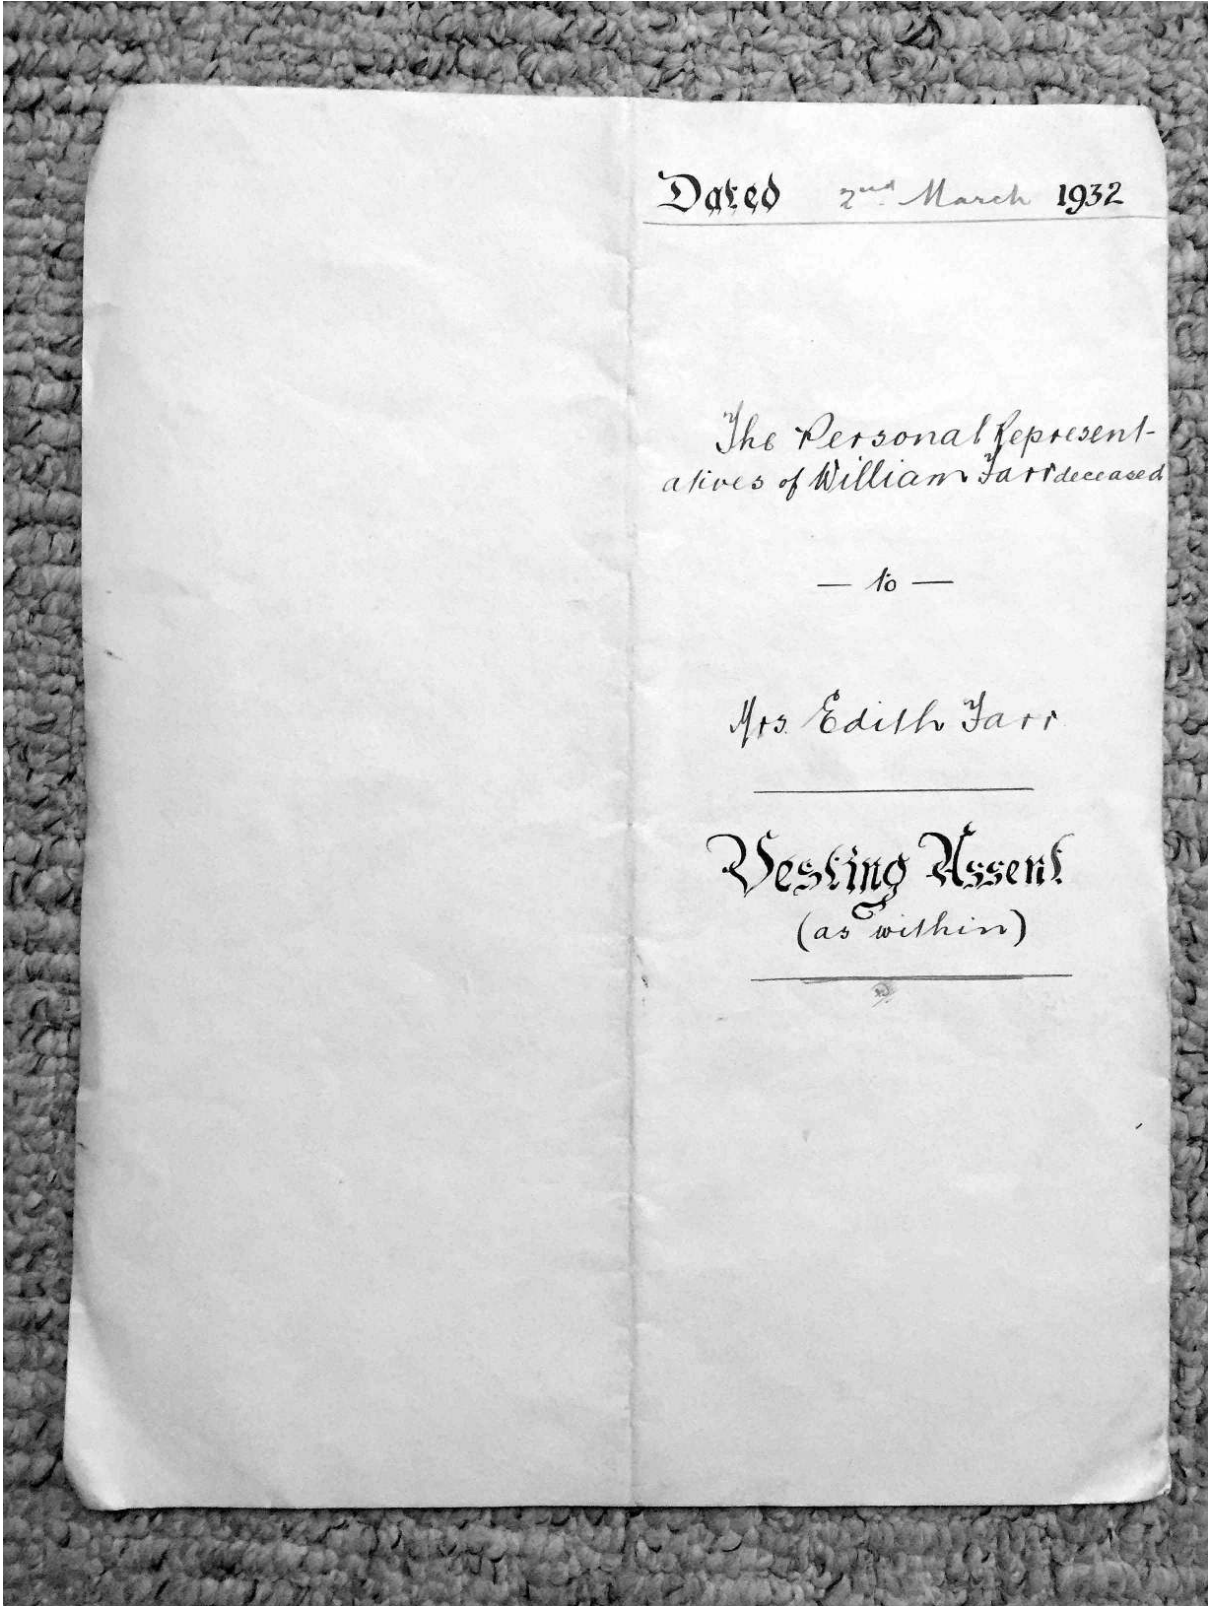 Dated 2nd March 1932
The Personal Represent-
atives of William Farr deceased
— to —
Mrs. Edith Farr
Vesting Assent
(as within)